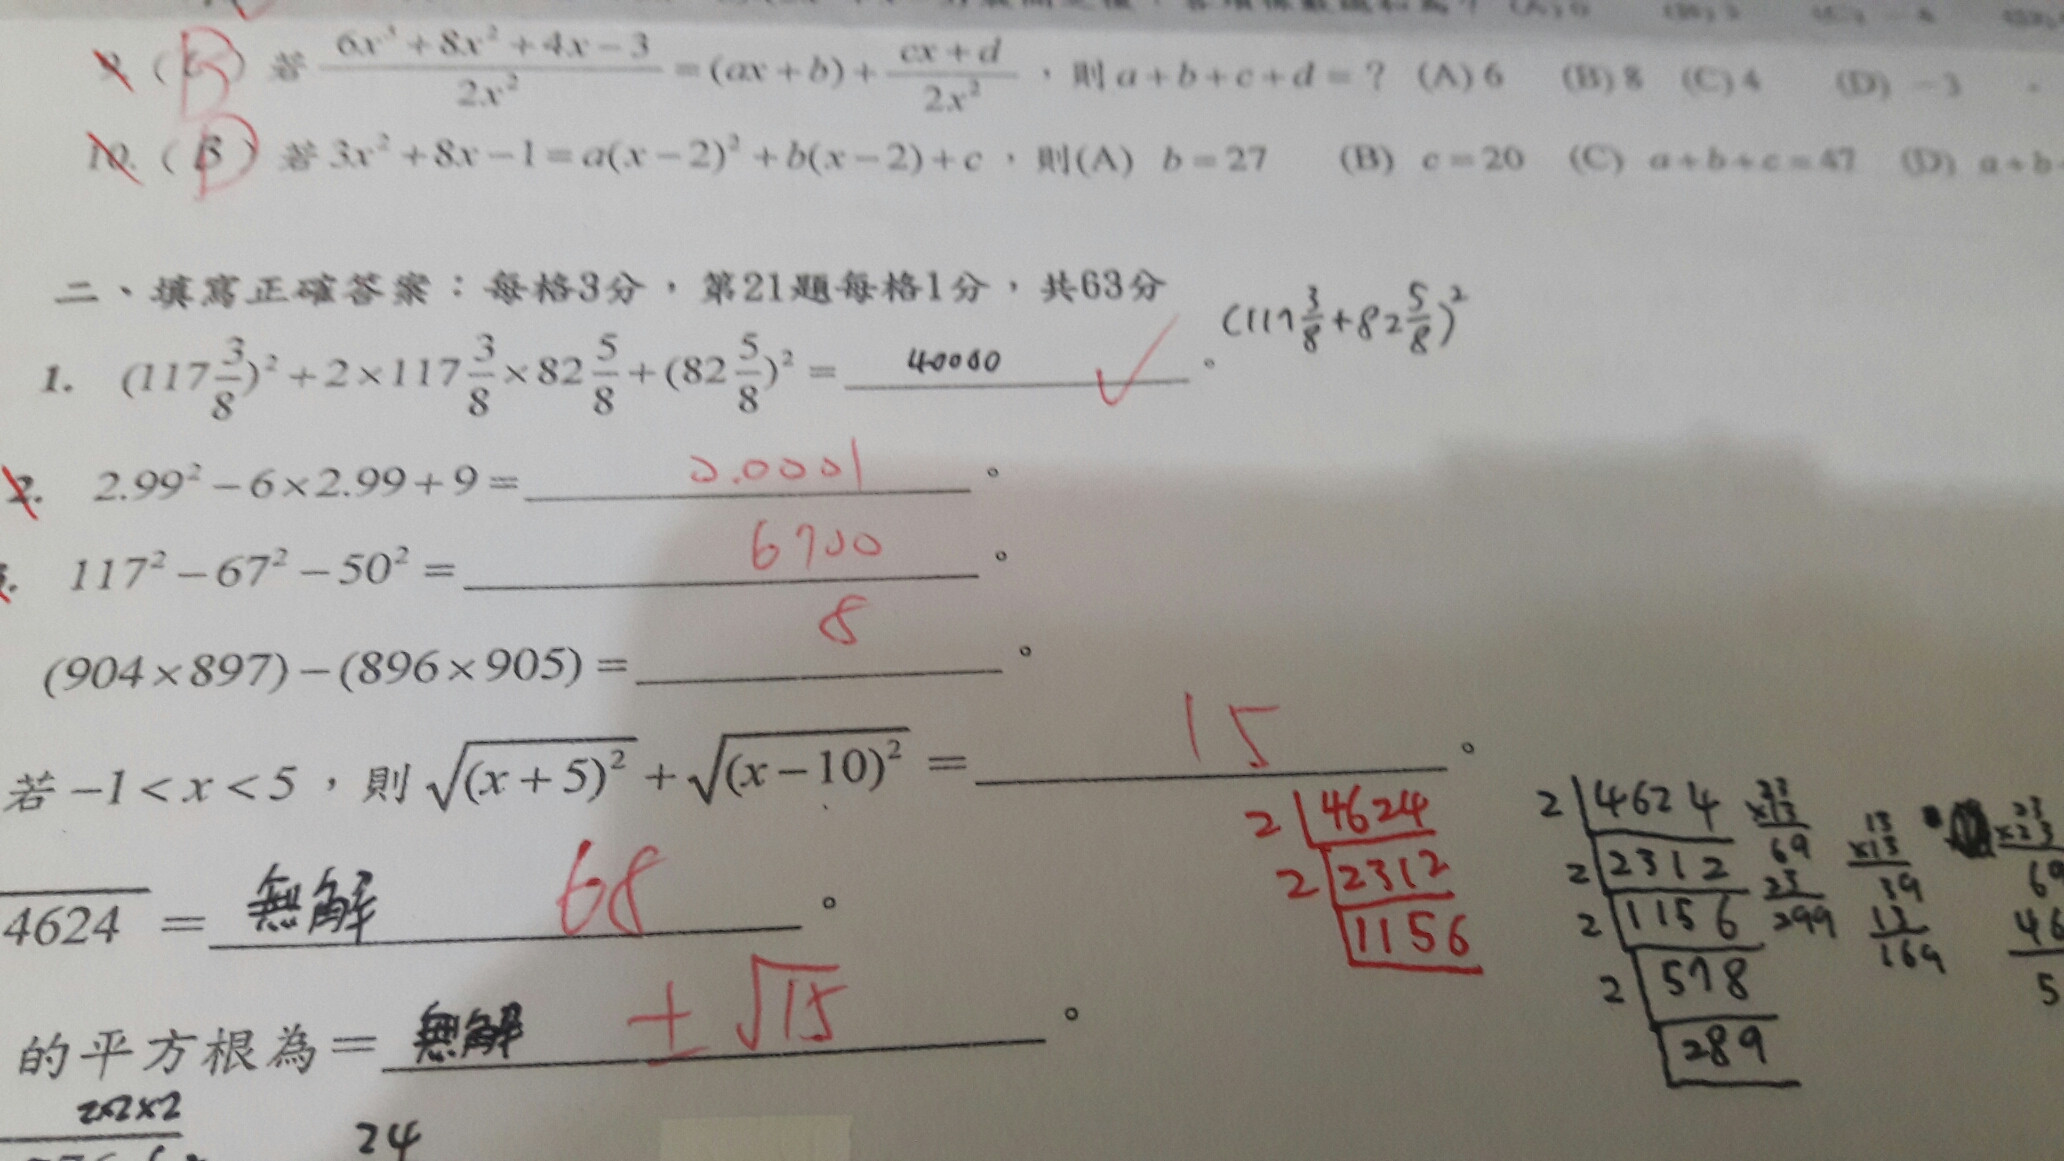 9. ( ) 若 (6x³+8x²+4x−3)/(2x²) = (ax+b) + (cx+d)/(2x²)，則 a+b+c+d=？ (A) 6 (B) 8 (C) 4 (D) −3
10. ( B ) 若 3x²+8x−1=a(x−2)²+b(x−2)+c，則(A) b=27 (B) c=20 (C) a+b+c=47 (D) a+b
二、填寫正確答案：每格3分，第21題每格1分，共63分
(117 3/8 + 82 5/8)²
1. (117 3/8)²+2×117 3/8×82 5/8+(82 5/8)²= 40000 ✓ 。
2. 2.99²−6×2.99+9= 0.0001 。
117²−67²−50²= 6700 。
(904×897)−(896×905)= 8 。
若 −1<x<5，則 √(x+5)² + √(x−10)² = 15 。
4624 = 無解 68 。
的平方根為= 無解 ±√15 。
2×2×2
24
2 4624
2 2312
1156
2 4624
2 2312
2 1156
2 578
289
69
23
299
13
×13
39
13
169
23
×23
69
46
5